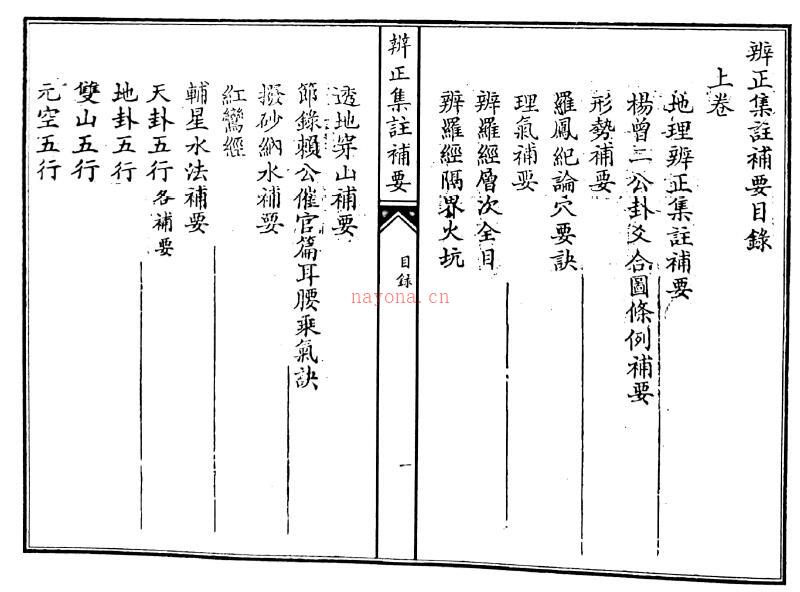 辨正集註補要目錄
上卷
地理辨正集註補要
楊曾二公卦爻合圖條例補要
形勢補要
羅鳳紀論穴要訣
理氣補要
辨羅經層次全目
辨羅經隔界火坑
辨正集註補要
目錄
一
透地穿山補要
節錄賴公催官篇耳腰乘氣訣
撥砂納水補要
紅鸞經
輔星水法補要
天卦五行各補要
地卦五行
雙山五行
元空五行
nayona.cn